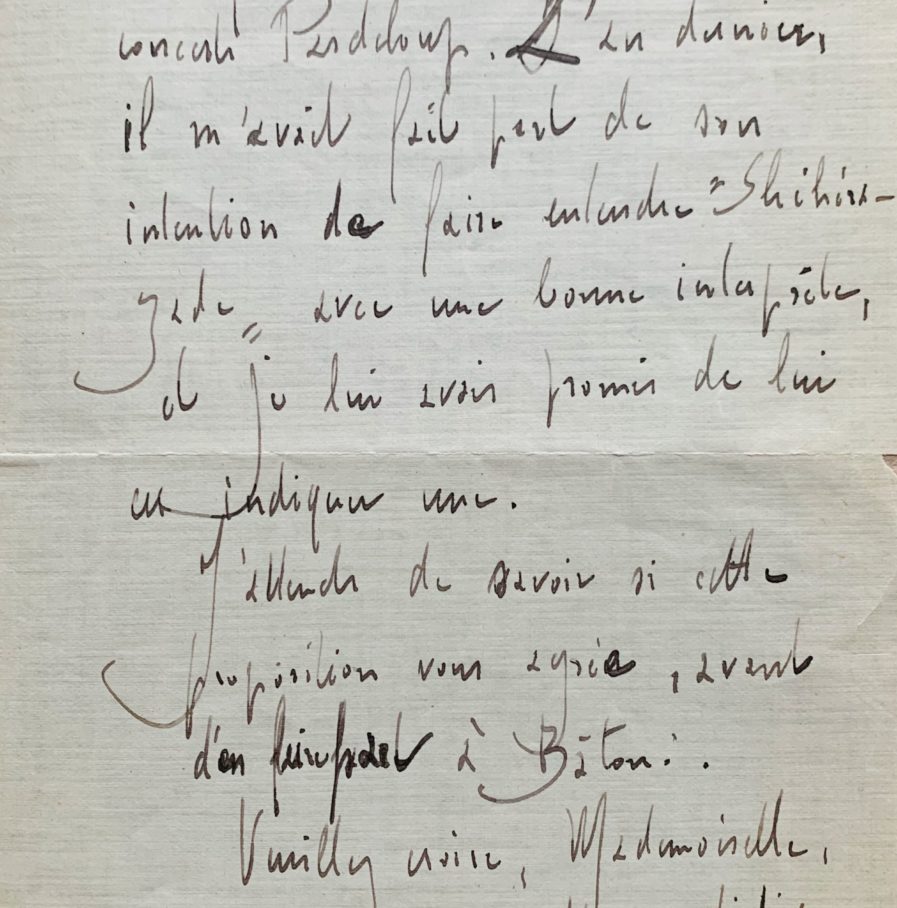 concerts Pasdeloup. L'an dernier,
il m'avait fait part de son
intention de faire entendre "Shéhéra-
zade" avec une bonne interprète,
et je lui avais promis de lui
en indiquer une.
J'attends de savoir si cette
proposition vous agrée, avant
d'en faire part à Bâton.
Veuillez croire, Mademoiselle,